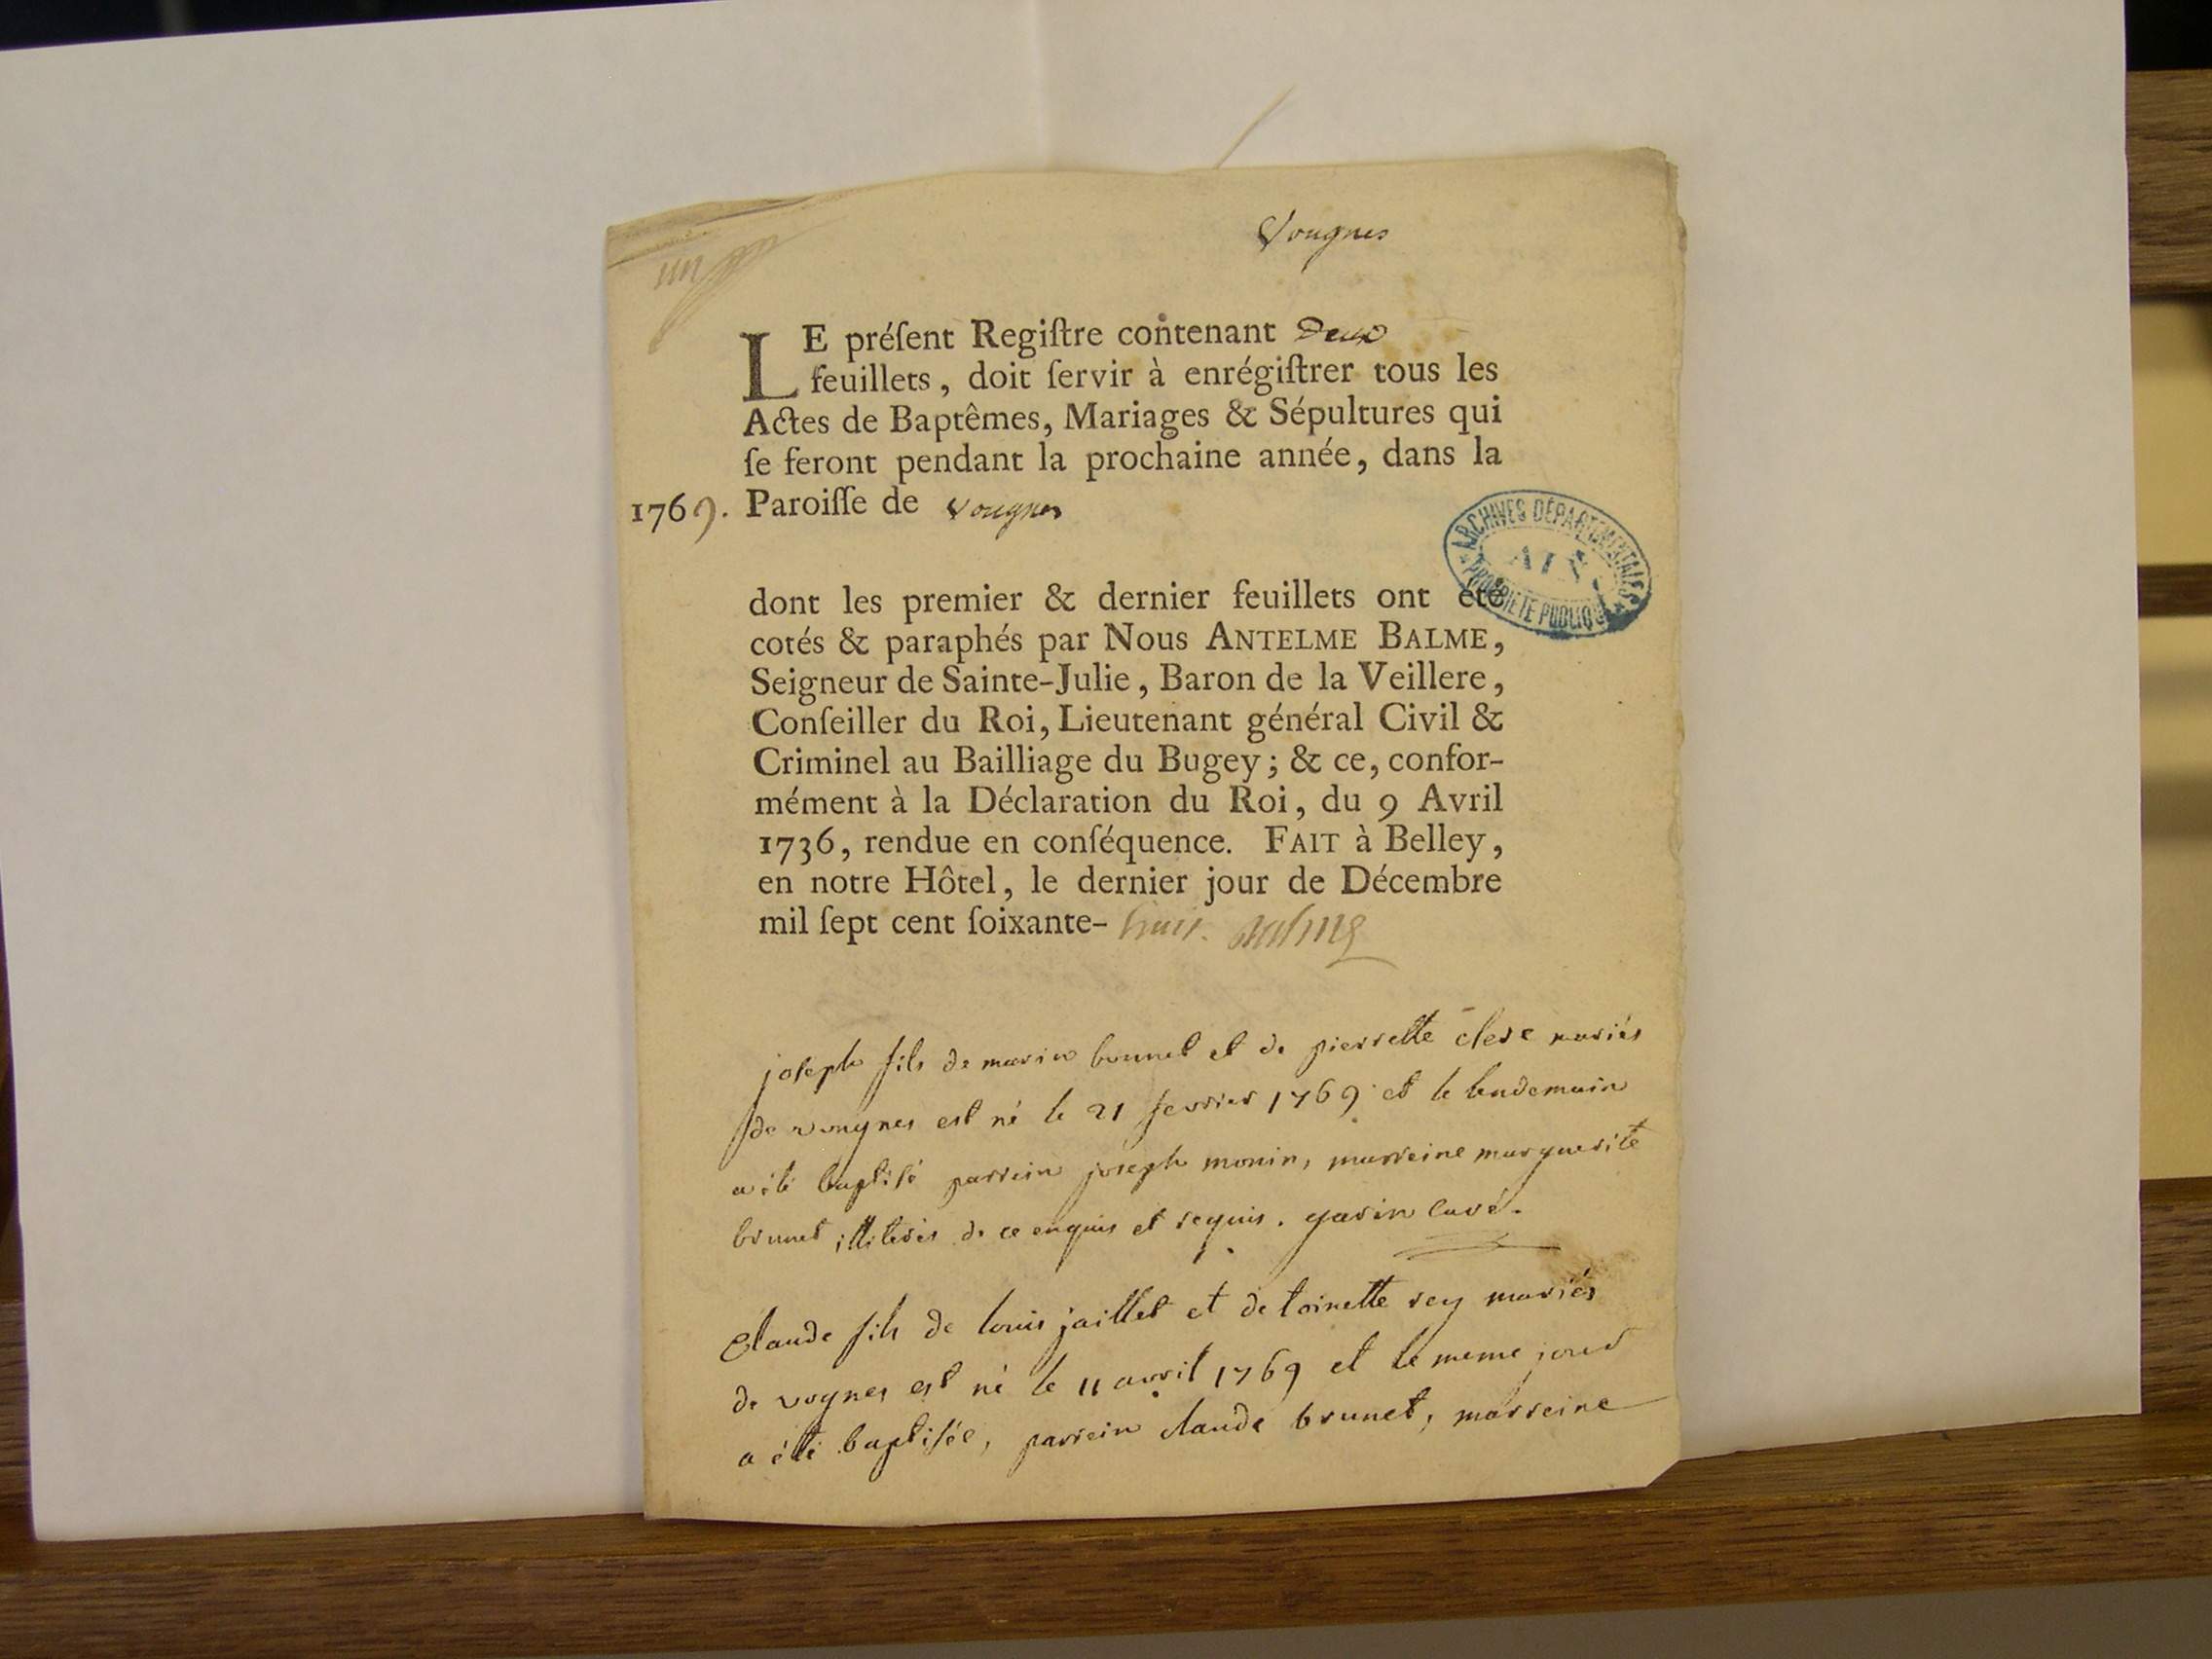 Vougnes
un
LE préſent Regiſtre contenant Deux
feuillets, doit ſervir à enrégiſtrer tous les
Actes de Baptêmes, Mariages & Sépultures qui
ſe feront pendant la prochaine année, dans la
1769. Paroiſſe de vougnes
ARCHIVES DÉPARTEMENTALES
AIN
PROPRIÉTÉ PUBLIQUE
dont les premier & dernier feuillets ont été
cotés & paraphés par Nous ANTELME BALME,
Seigneur de Sainte-Julie, Baron de la Veillere,
Conſeiller du Roi, Lieutenant général Civil &
Criminel au Bailliage du Bugey; & ce, confor-
mément à la Déclaration du Roi, du 9 Avril
1736, rendue en conſéquence. FAIT à Belley,
en notre Hôtel, le dernier jour de Décembre
mil ſept cent ſoixante-huit. Balme
joseph fils de marin brunet et de pierrette clerc mariés
de vougnes est né le 21 fevrier 1769 et le lendemain
a été baptisé parrein joseph monin, marreine marguerite
brunet illiterés de ce enquis et requis. garin curé.
Claude fils de louis jaillet et de toinette rey mariés
de vognes est né le 11 avril 1769 et le meme jour
a été baptisée, parrein claude brunet, marreine